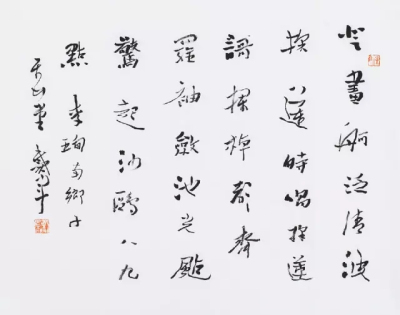 登畫舸泛清波
採蓮時唱採蓮
謌棹聲齊
羅袖斂池光颭
驚起沙鷗八九
點 李珣南鄉子